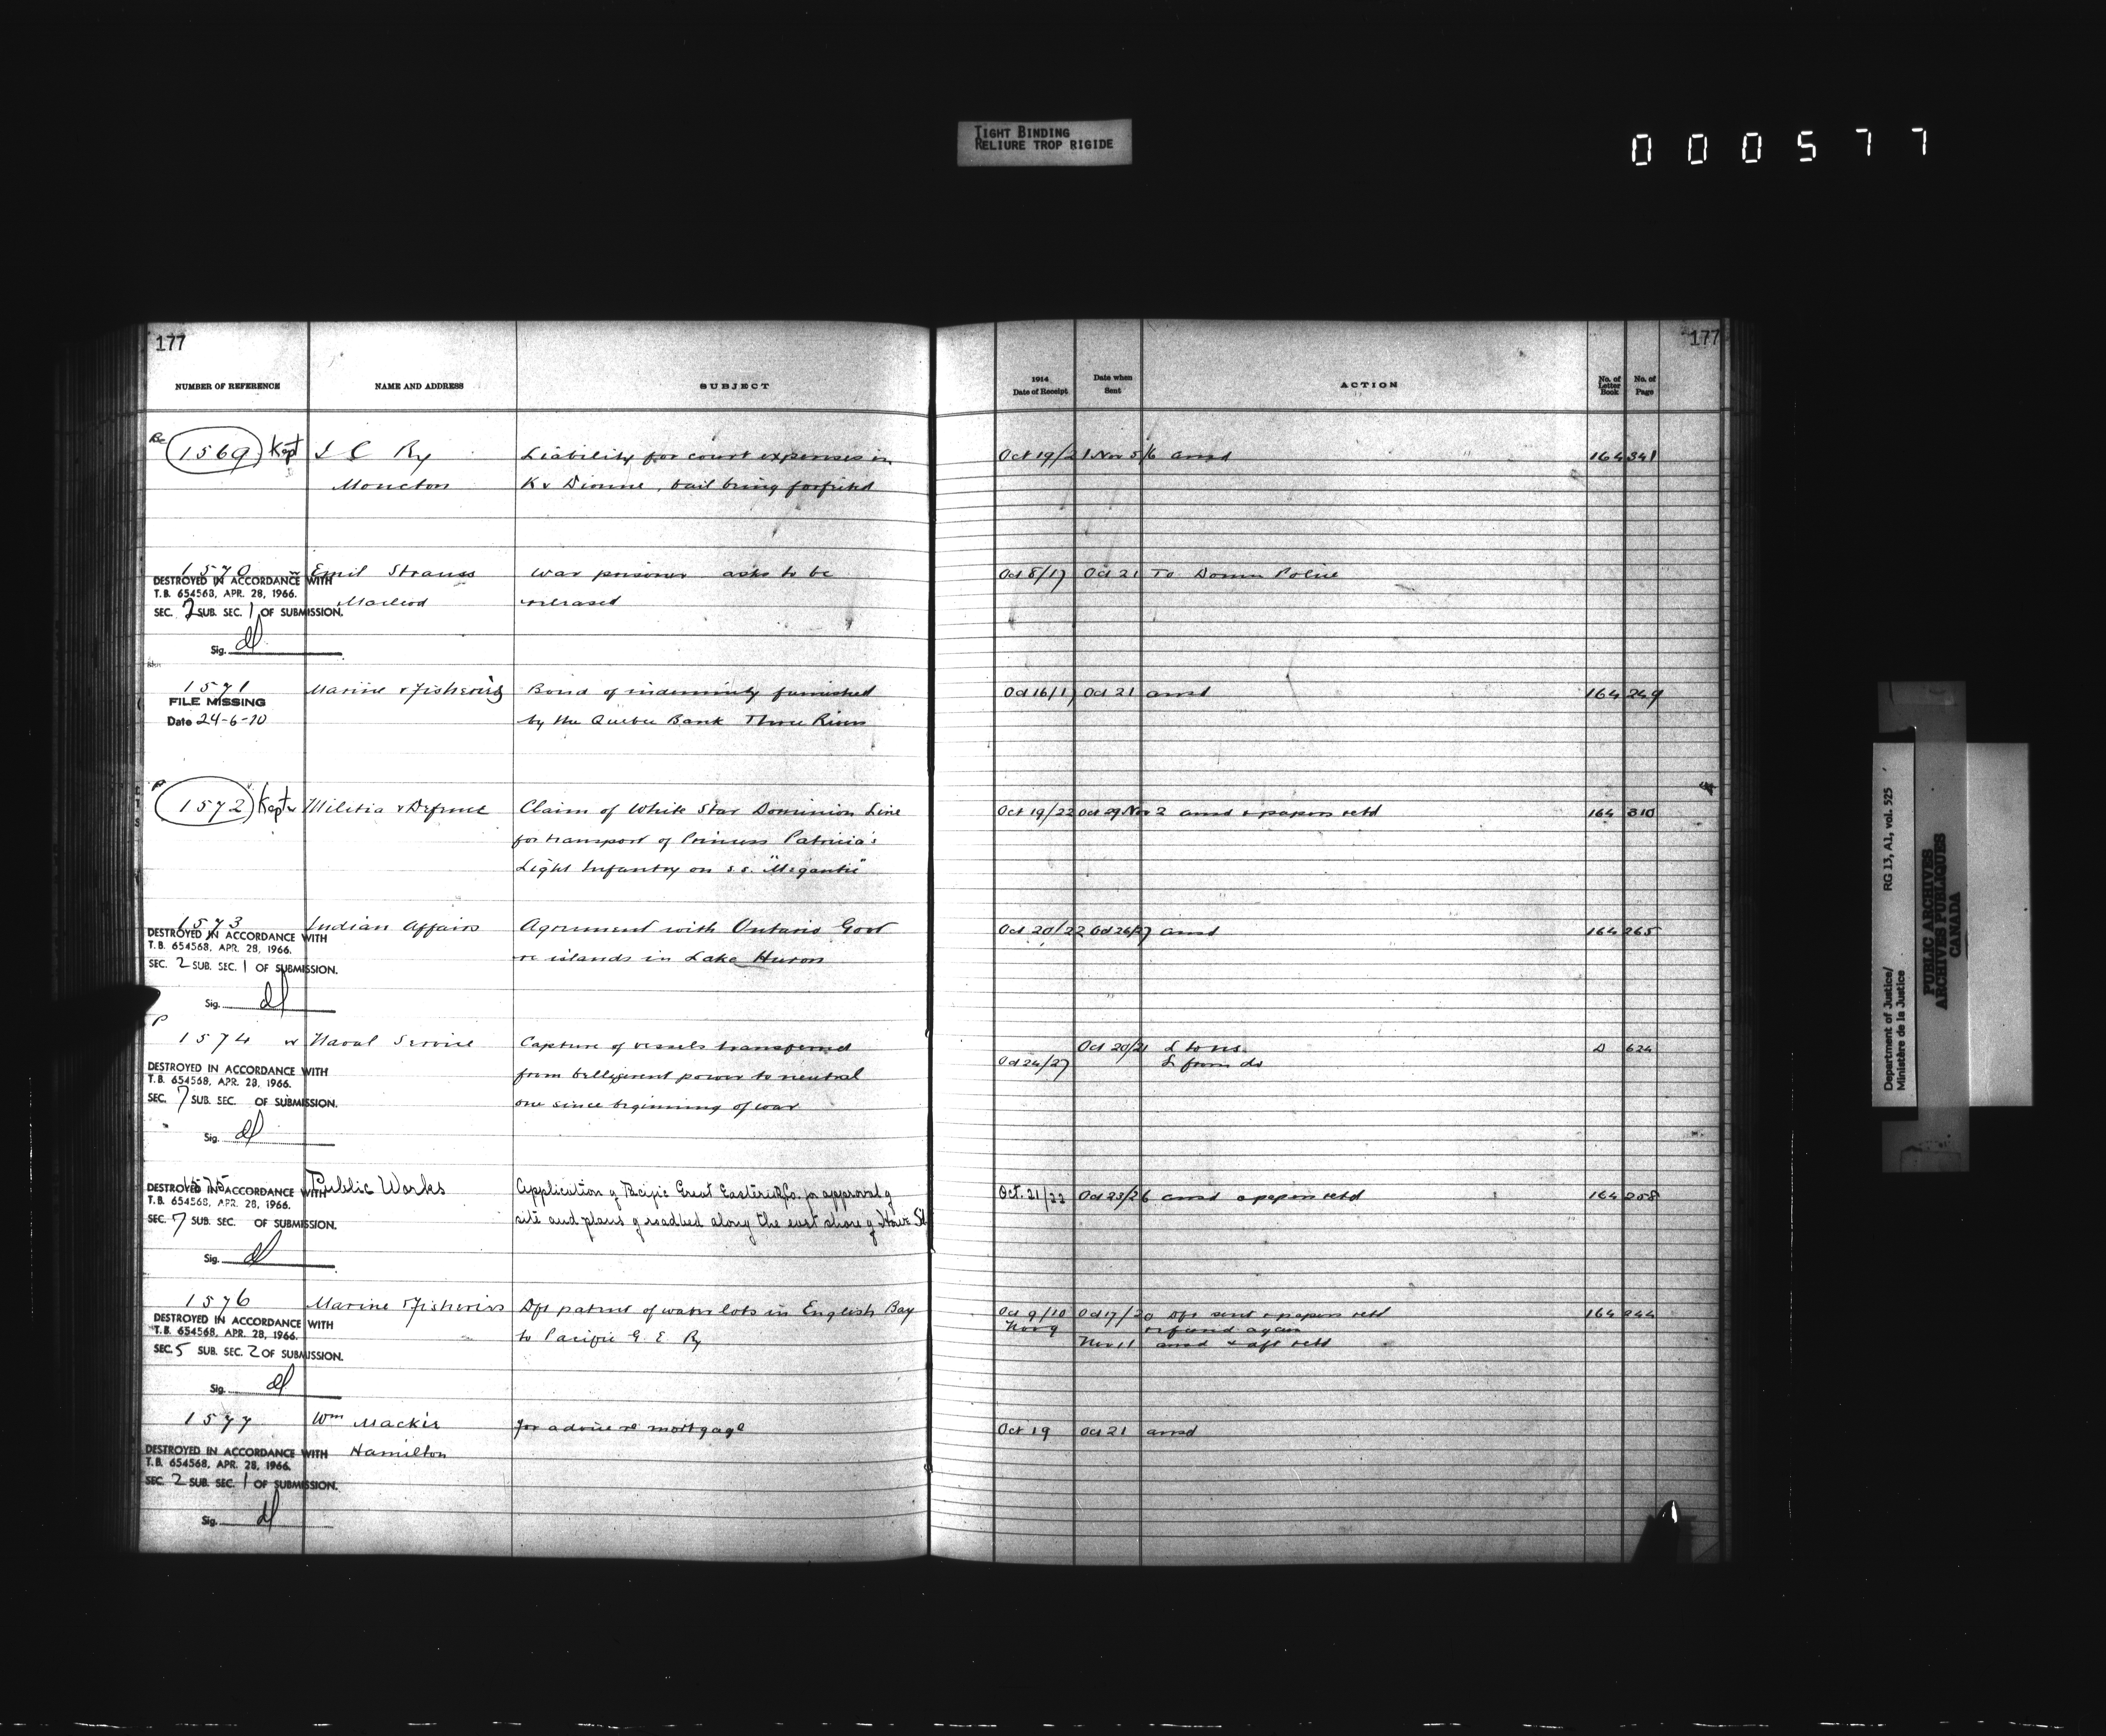 TIGHT BINDING
RELIURE TROP RIGIDE
000577
177
177
NUMBER OF REFERENCE NAME AND ADDRESS SUBJECT 1914 Date of Receipt Date when Sent ACTION No. of Letter Book No. of Page
1569 Kept I C Ry Liability for court expenses in Oct 19/21 Nov 5/6 ansd 164 341
Moncton K v Dionne, bail being forfeited
1570 Emil Strauss War prisoner asks to be Oct 8/17 Oct 21 To Domn Police
DESTROYED IN ACCORDANCE WITH
T.B. 654568, APR. 28, 1966.
Macleod released
SEC. 2 SUB. SEC. 1 OF SUBMISSION.
Sig.
1571 Marine & Fisheries Bond of indemnity furnished Oct 16/17 Oct 21 ansd 164 249
FILE MISSING
Date 24-6-70 by the Quebec Bank Three Rivers
1572 Kept Militia & Defence Claim of White Star Dominion Line Oct 19/22 Oct 29 Nov 2 ansd & papers retd 164 310
for transport of Princess Patricia's
Light Infantry on s.s. "Megantic"
1573 Indian Affairs Agreement with Ontario Govt Oct 20/22 Oct 26/27 ansd 164 265
DESTROYED IN ACCORDANCE WITH
T.B. 654568, APR. 28, 1966.
re islands in Lake Huron
SEC. 2 SUB. SEC. 1 OF SUBMISSION.
Sig.
P
1574 Naval Service Capture of vessels transferred Oct 20/21 L to ns D 624
Oct 26/27 L from do
DESTROYED IN ACCORDANCE WITH
T.B. 654568, APR. 28, 1966.
from belligerent power to neutral
SEC. 7 SUB. SEC. OF SUBMISSION.
one since beginning of war
Sig.
1575 Public Works Application of Pacific Great Eastern Ry Co. for approval of Oct. 21/22 Oct 23/26 ansd & papers retd 164 258
DESTROYED IN ACCORDANCE WITH
T.B. 654568, APR. 28, 1966.
site and plans of roadbed along the east shore of Howe Sd
SEC. 7 SUB. SEC. OF SUBMISSION.
Sig.
1576 Marine & Fisheries Dft patent of water lots in English Bay Oct 9/10 Oct 17/20 Dft sent & papers retd 164 244
Nov 9 referred again
DESTROYED IN ACCORDANCE WITH
T.B. 654568, APR. 28, 1966.
to Pacific G. E. Ry Nov 11 ansd & dft retd
SEC. 5 SUB. SEC. 2 OF SUBMISSION.
Sig.
1577 Wm Mackie for advice re mortgage Oct 19 Oct 21 ansd
Hamilton
DESTROYED IN ACCORDANCE WITH
T.B. 654568, APR. 28, 1966.
SEC. 2 SUB. SEC. 1 OF SUBMISSION.
Sig.
Department of Justice/ RG 13, A1, vol. 525
Ministère de la Justice
PUBLIC ARCHIVES
ARCHIVES PUBLIQUES
CANADA